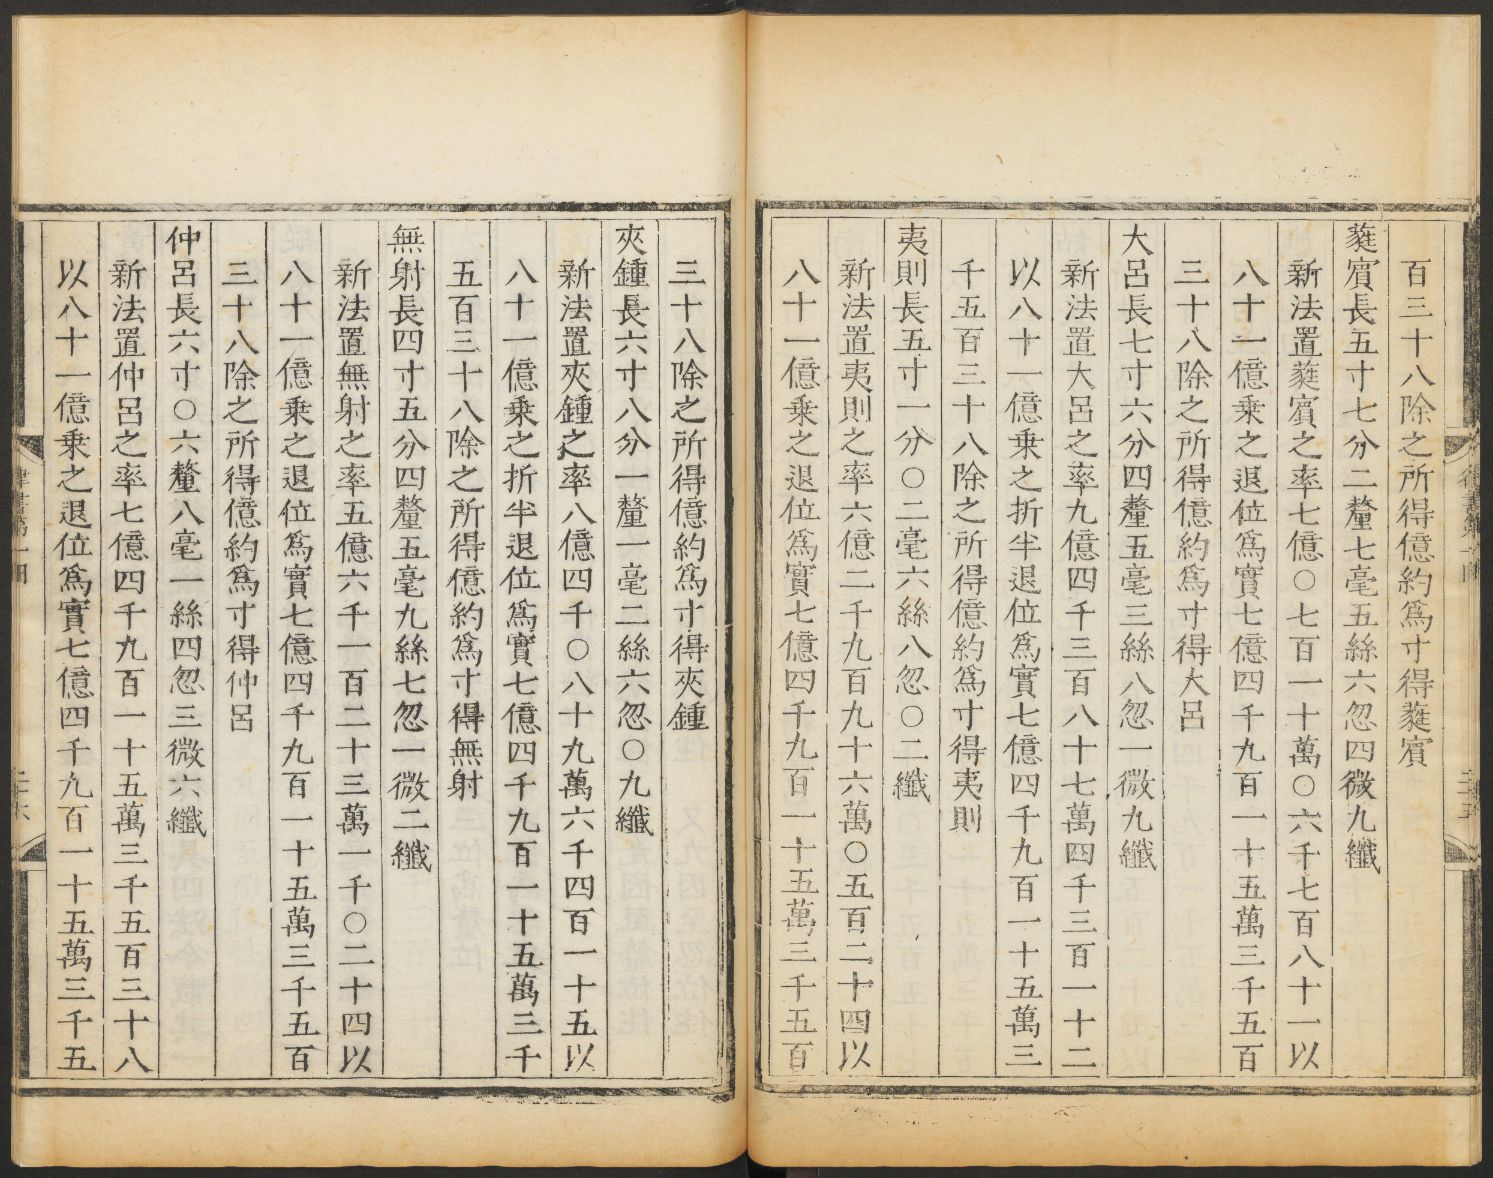 百三十八除之所得億約爲寸得蕤賓
蕤賓長五寸七分二釐七毫五絲六忽四微九纖
新法置蕤賓之率七億〇七百一十萬〇六千七百八十一以
八十一億乘之退位爲實七億四千九百一十五萬三千五百
三十八除之所得億約爲寸得大呂
大呂長七寸六分四釐五毫三絲八忽一微九纖
新法置大呂之率九億四千三百八十七萬四千三百一十二
以八十一億乘之折半退位爲實七億四千九百一十五萬三
千五百三十八除之所得億約爲寸得夷則
夷則長五寸一分〇二毫六絲八忽〇二纖
新法置夷則之率六億二千九百九十六萬〇五百二十四以
八十一億乘之退位爲實七億四千九百一十五萬三千五百
三十八除之所得億約爲寸得夾鍾
夾鍾長六寸八分一釐一毫二絲六忽〇九纖
新法置夾鍾之率八億四千〇八十九萬六千四百一十五以
八十一億乘之折半退位爲實七億四千九百一十五萬三千
五百三十八除之所得億約爲寸得無射
無射長四寸五分四釐五毫九絲七忽一微二纖
新法置無射之率五億六千一百二十三萬一千〇二十四以
八十一億乘之退位爲實七億四千九百一十五萬三千五百
三十八除之所得億約爲寸得仲呂
仲呂長六寸〇六釐八毫一絲四忽三微六纖
新法置仲呂之率七億四千九百一十五萬三千五百三十八
以八十一億乘之退位爲實七億四千九百一十五萬三千五